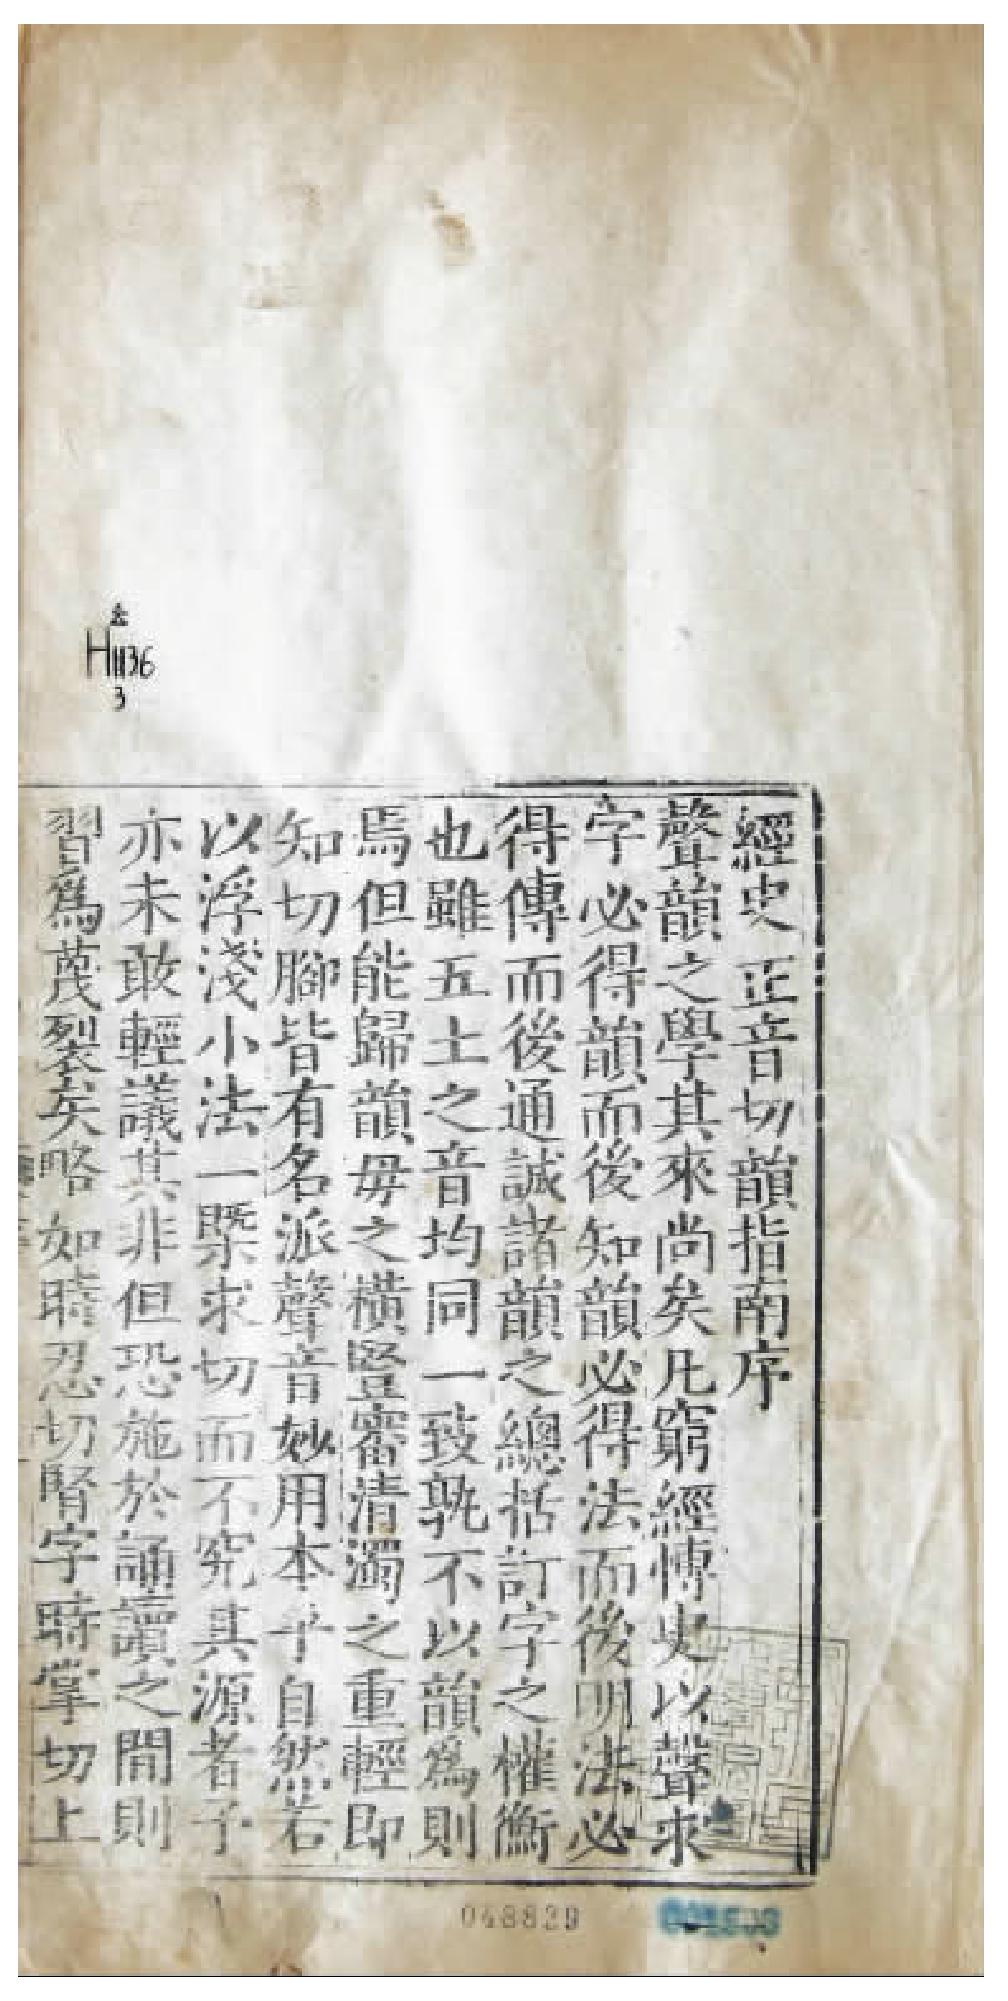 經史正音切韻指南序
聲韻之學其來尚矣凡窮經愽史以聲求
字必得韻而後知韻必得法而後明法必
得傳而後通誠諸韻之總括訂字之權衡
也雖五土之音均同一致孰不以韻爲則
焉但能歸韻毋之橫豎審清濁之重輕即
知切腳皆有名派聲音妙用本乎自然若
以浮淺小法一槩求切而不究其源者予
亦未敢輕議其非但恐施於誦讀之間則
習爲蔑裂矣略如時忍切腎字時掌切上
H1136
3
048829